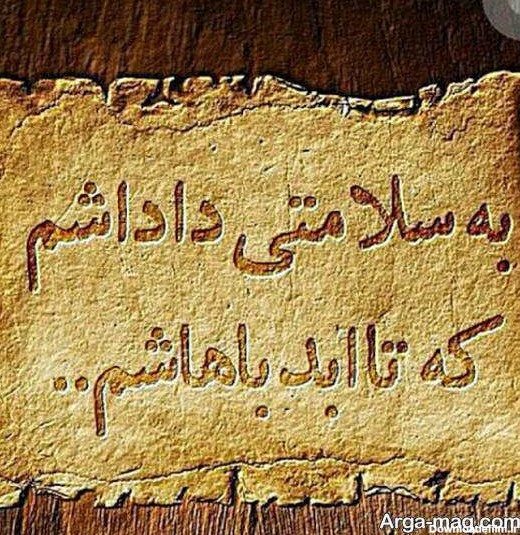 به سلامتی داداشم
که تا ابد باهاشم..
Arga-mag.com